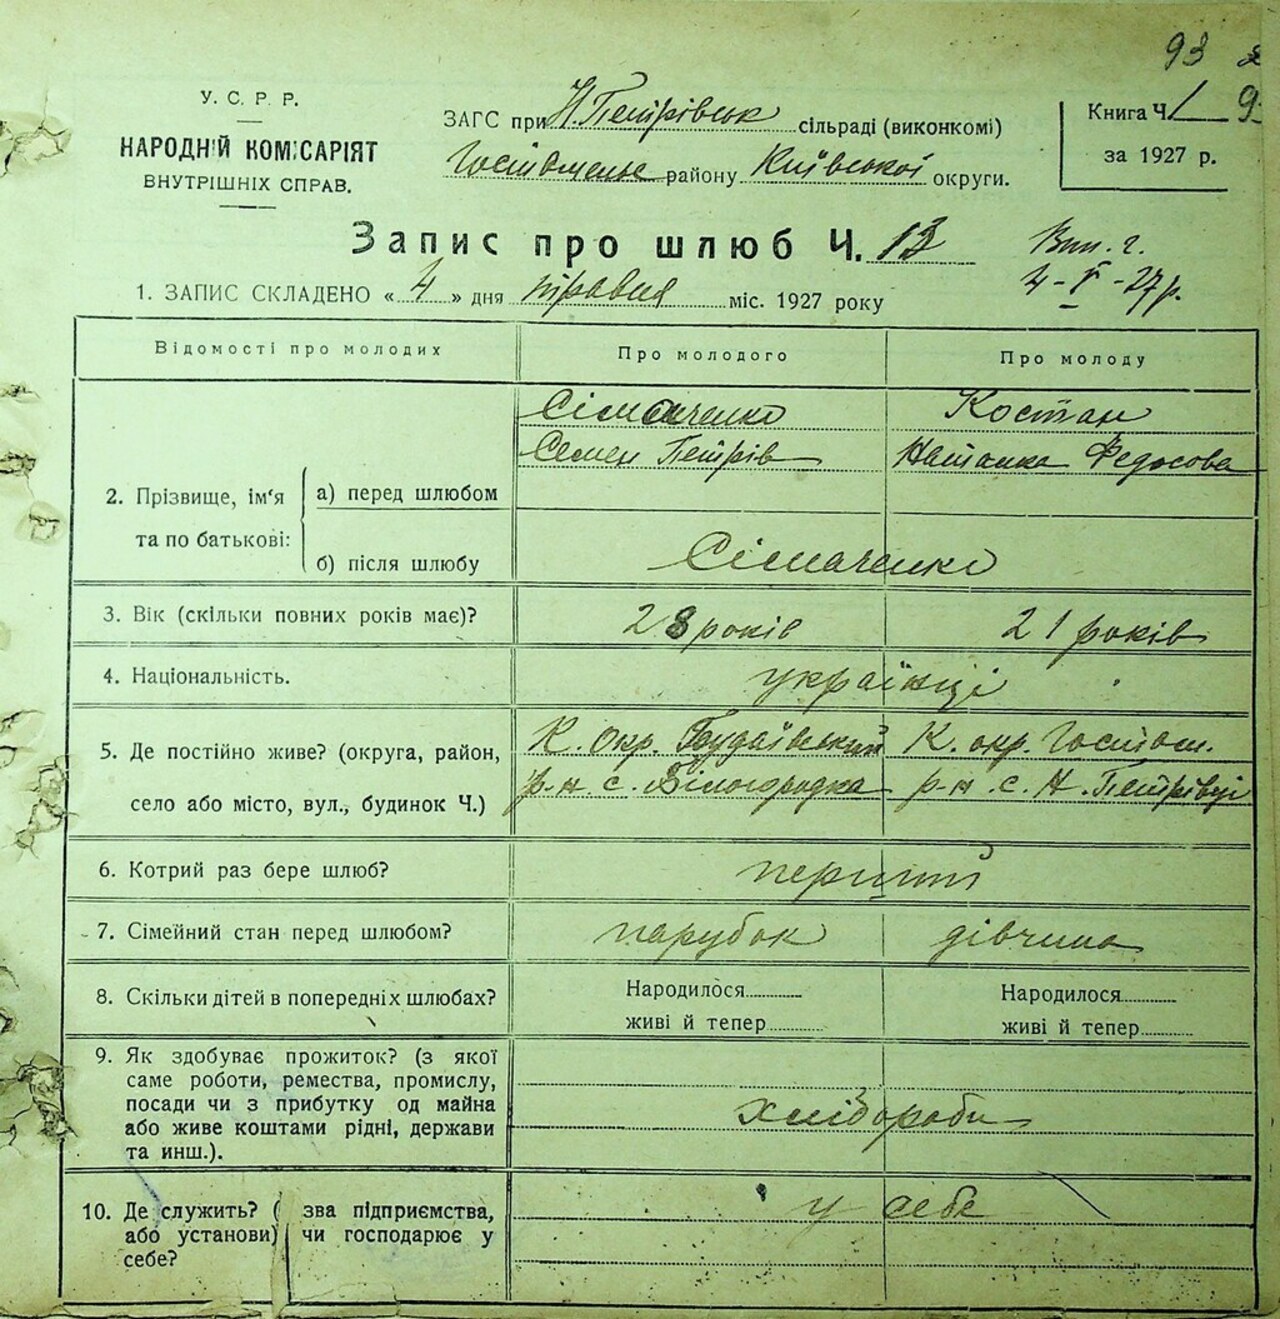 93
У. С. Р. Р.
НАРОДНІЙ КОМІСАРІЯТ
ВНУТРІШНІХ СПРАВ.
ЗАГС при Н. Петрівськ сільраді (виконкомі)
району Київської округи.
Книга Ч. 1
за 1927 р.
Запис про шлюб Ч. 13
Вип. г.
4-V-27 р.
1. ЗАПИС СКЛАДЕНО « 4 » дня травня міс. 1927 року
Відомості про молодих
Про молодого
Про молоду
2. Прізвище, ім‘я та по батькові:
а) перед шлюбом
Сімаченко
Семен Петрів
Костан
Наталка Федосова
б) після шлюбу
Сімаченко
3. Вік (скільки повних років має)?
28 років
21 років
4. Національність.
українці
5. Де постійно живе? (округа, район,
село або місто, вул., будинок Ч.)
К. окр. Будаївський
р-н с. Білогородка
К. окр. Гостом.
р-н с. Н. Петрівці
6. Котрий раз бере шлюб?
перший
7. Сімейний стан перед шлюбом?
парубок
дівчина
8. Скільки дітей в попередніх шлюбах?
Народилося
живі й тепер
Народилося
живі й тепер
9. Як здобуває прожиток? (з якої
саме роботи, ремества, промислу,
посади чи з прибутку од майна
або живе коштами рідні, держави
та инш.).
хлібороби
10. Де служить? ( зва підприємства,
або установи) чи господарює у
себе?
у себе